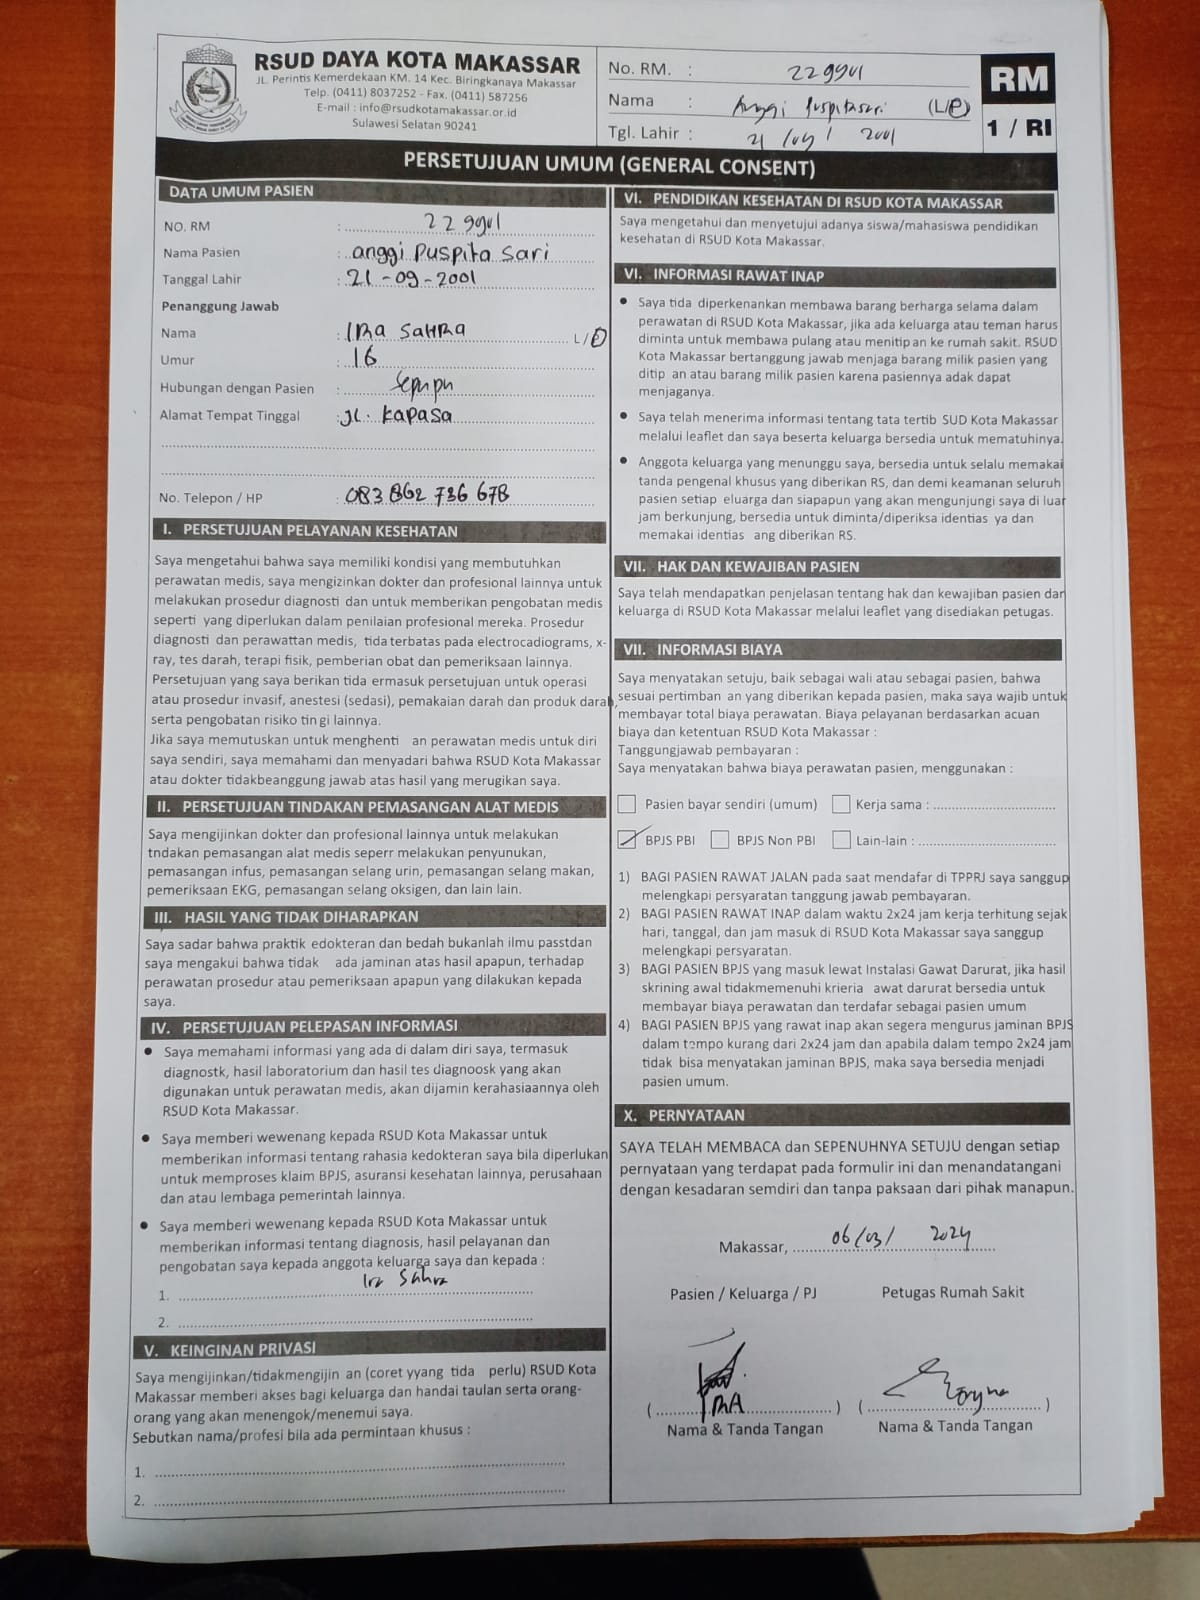 RSUD DAYA KOTA MAKASSAR
JL. Perintis Kemerdekaan KM. 14 Kec. Biringkanaya Makassar
Telp. (0411) 8037252 - Fax. (0411) 587256
E-mail : info@rsudkotamakassar.or.id
Sulawesi Selatan 90241
No. RM. :
Nama : Anggi Puspitasari (L/P)
Tgl. Lahir : 21 / 09 / 2001
RM
1 / RI
PERSETUJUAN UMUM (GENERAL CONSENT)
DATA UMUM PASIEN
NO. RM :
Nama Pasien : anggi Puspita Sari
Tanggal Lahir : 21-09-2001
Penanggung Jawab
Nama : IRA SAHRA L/P
Umur : 16
Hubungan dengan Pasien : Sepupu
Alamat Tempat Tinggal : JL. Kapasa
No. Telepon / HP : 083 862 736 678
I. PERSETUJUAN PELAYANAN KESEHATAN
Saya mengetahui bahwa saya memiliki kondisi yang membutuhkan
perawatan medis, saya mengizinkan dokter dan profesional lainnya untuk
melakukan prosedur diagnosti dan untuk memberikan pengobatan medis
seperti yang diperlukan dalam penilaian profesional mereka. Prosedur
diagnosti dan perawattan medis, tida terbatas pada electrocadiograms, x-
ray, tes darah, terapi fisik, pemberian obat dan pemeriksaan lainnya.
Persetujuan yang saya berikan tida ermasuk persetujuan untuk operasi
atau prosedur invasif, anestesi (sedasi), pemakaian darah dan produk darah,
serta pengobatan risiko tingi lainnya.
Jika saya memutuskan untuk menghenti an perawatan medis untuk diri
saya sendiri, saya memahami dan menyadari bahwa RSUD Kota Makassar
atau dokter tidakbeanggung jawab atas hasil yang merugikan saya.
II. PERSETUJUAN TINDAKAN PEMASANGAN ALAT MEDIS
Saya mengijinkan dokter dan profesional lainnya untuk melakukan
tndakan pemasangan alat medis seperr melakukan penyunukan,
pemasangan infus, pemasangan selang urin, pemasangan selang makan,
pemeriksaan EKG, pemasangan selang oksigen, dan lain lain.
III. HASIL YANG TIDAK DIHARAPKAN
Saya sadar bahwa praktik edokteran dan bedah bukanlah ilmu passtdan
saya mengakui bahwa tidak ada jaminan atas hasil apapun, terhadap
perawatan prosedur atau pemeriksaan apapun yang dilakukan kepada
saya.
IV. PERSETUJUAN PELEPASAN INFORMASI
• Saya memahami informasi yang ada di dalam diri saya, termasuk
diagnostk, hasil laboratorium dan hasil tes diagnoosk yang akan
digunakan untuk perawatan medis, akan dijamin kerahasiaannya oleh
RSUD Kota Makassar.
• Saya memberi wewenang kepada RSUD Kota Makassar untuk
memberikan informasi tentang rahasia kedokteran saya bila diperlukan
untuk memproses klaim BPJS, asuransi kesehatan lainnya, perusahaan
dan atau lembaga pemerintah lainnya.
• Saya memberi wewenang kepada RSUD Kota Makassar untuk
memberikan informasi tentang diagnosis, hasil pelayanan dan
pengobatan saya kepada anggota keluarga saya dan kepada :
1. Ira Sahra
2.
V. KEINGINAN PRIVASI
Saya mengijinkan/tidakmengijin an (coret yyang tida perlu) RSUD Kota
Makassar memberi akses bagi keluarga dan handai taulan serta orang-
orang yang akan menengok/menemui saya.
Sebutkan nama/profesi bila ada permintaan khusus :
1.
2.
VI. PENDIDIKAN KESEHATAN DI RSUD KOTA MAKASSAR
Saya mengetahui dan menyetujui adanya siswa/mahasiswa pendidikan
kesehatan di RSUD Kota Makassar.
VI. INFORMASI RAWAT INAP
• Saya tida diperkenankan membawa barang berharga selama dalam
perawatan di RSUD Kota Makassar, jika ada keluarga atau teman harus
diminta untuk membawa pulang atau menitip an ke rumah sakit. RSUD
Kota Makassar bertanggung jawab menjaga barang milik pasien yang
ditip an atau barang milik pasien karena pasiennya adak dapat
menjaganya.
• Saya telah menerima informasi tentang tata tertib SUD Kota Makassar
melalui leaflet dan saya beserta keluarga bersedia untuk mematuhinya.
• Anggota keluarga yang menunggu saya, bersedia untuk selalu memakai
tanda pengenal khusus yang diberikan RS, dan demi keamanan seluruh
pasien setiap eluarga dan siapapun yang akan mengunjungi saya di luar
jam berkunjung, bersedia untuk diminta/diperiksa identias ya dan
memakai identias ang diberikan RS.
VII. HAK DAN KEWAJIBAN PASIEN
Saya telah mendapatkan penjelasan tentang hak dan kewajiban pasien dan
keluarga di RSUD Kota Makassar melalui leaflet yang disediakan petugas.
VII. INFORMASI BIAYA
Saya menyatakan setuju, baik sebagai wali atau sebagai pasien, bahwa
sesuai pertimban an yang diberikan kepada pasien, maka saya wajib untuk
membayar total biaya perawatan. Biaya pelayanan berdasarkan acuan
biaya dan ketentuan RSUD Kota Makassar :
Tanggungjawab pembayaran :
Saya menyatakan bahwa biaya perawatan pasien, menggunakan :
Pasien bayar sendiri (umum) Kerja sama :
BPJS PBI BPJS Non PBI Lain-lain :
1) BAGI PASIEN RAWAT JALAN pada saat mendafar di TPPRJ saya sanggup
melengkapi persyaratan tanggung jawab pembayaran.
2) BAGI PASIEN RAWAT INAP dalam waktu 2x24 jam kerja terhitung sejak
hari, tanggal, dan jam masuk di RSUD Kota Makassar saya sanggup
melengkapi persyaratan.
3) BAGI PASIEN BPJS yang masuk lewat Instalasi Gawat Darurat, jika hasil
skrining awal tidakmemenuhi krieria awat darurat bersedia untuk
membayar biaya perawatan dan terdafar sebagai pasien umum
4) BAGI PASIEN BPJS yang rawat inap akan segera mengurus jaminan BPJS
dalam tempo kurang dari 2x24 jam dan apabila dalam tempo 2x24 jam
tidak bisa menyatakan jaminan BPJS, maka saya bersedia menjadi
pasien umum.
X. PERNYATAAN
SAYA TELAH MEMBACA dan SEPENUHNYA SETUJU dengan setiap
pernyataan yang terdapat pada formulir ini dan menandatangani
dengan kesadaran semdiri dan tanpa paksaan dari pihak manapun.
Makassar, 06/03/ 2024
Pasien / Keluarga / PJ Petugas Rumah Sakit
( IRA ) ( )
Nama & Tanda Tangan Nama & Tanda Tangan